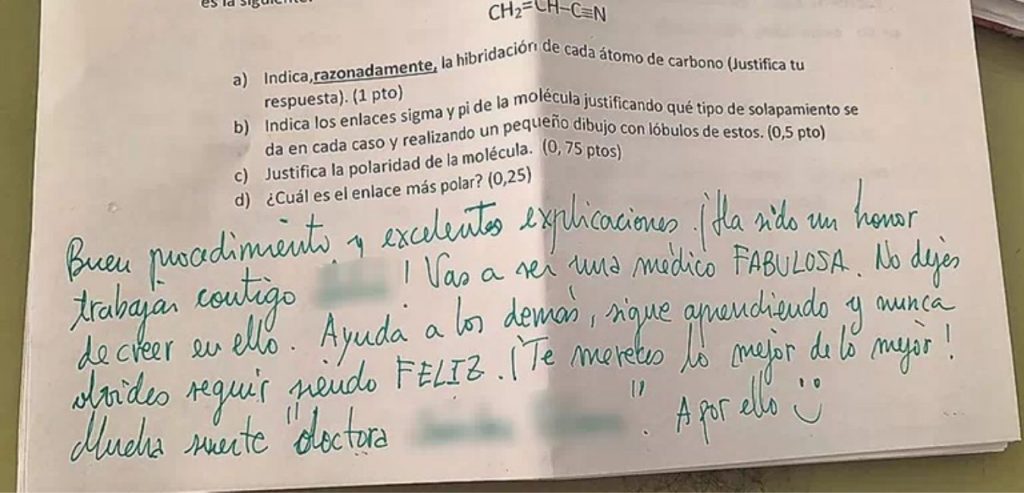 es la siguiente:
CH₂=CH–C≡N
a) Indica, razonadamente, la hibridación de cada átomo de carbono (Justifica tu
respuesta). (1 pto)
b) Indica los enlaces sigma y pi de la molécula justificando qué tipo de solapamiento se
da en cada caso y realizando un pequeño dibujo con lóbulos de estos. (0,5 pto)
c) Justifica la polaridad de la molécula. (0, 75 ptos)
d) ¿Cuál es el enlace más polar? (0,25)
Buen procedimiento y excelentes explicaciones. ¡Ha sido un honor
trabajar contigo ! Vas a ser una médico FABULOSA. No dejes
de creer en ello. Ayuda a los demás, sigue aprendiendo y nunca
olvides seguir siendo FELIZ. ¡Te mereces lo mejor de lo mejor!
Mucha suerte "doctora ". A por ello